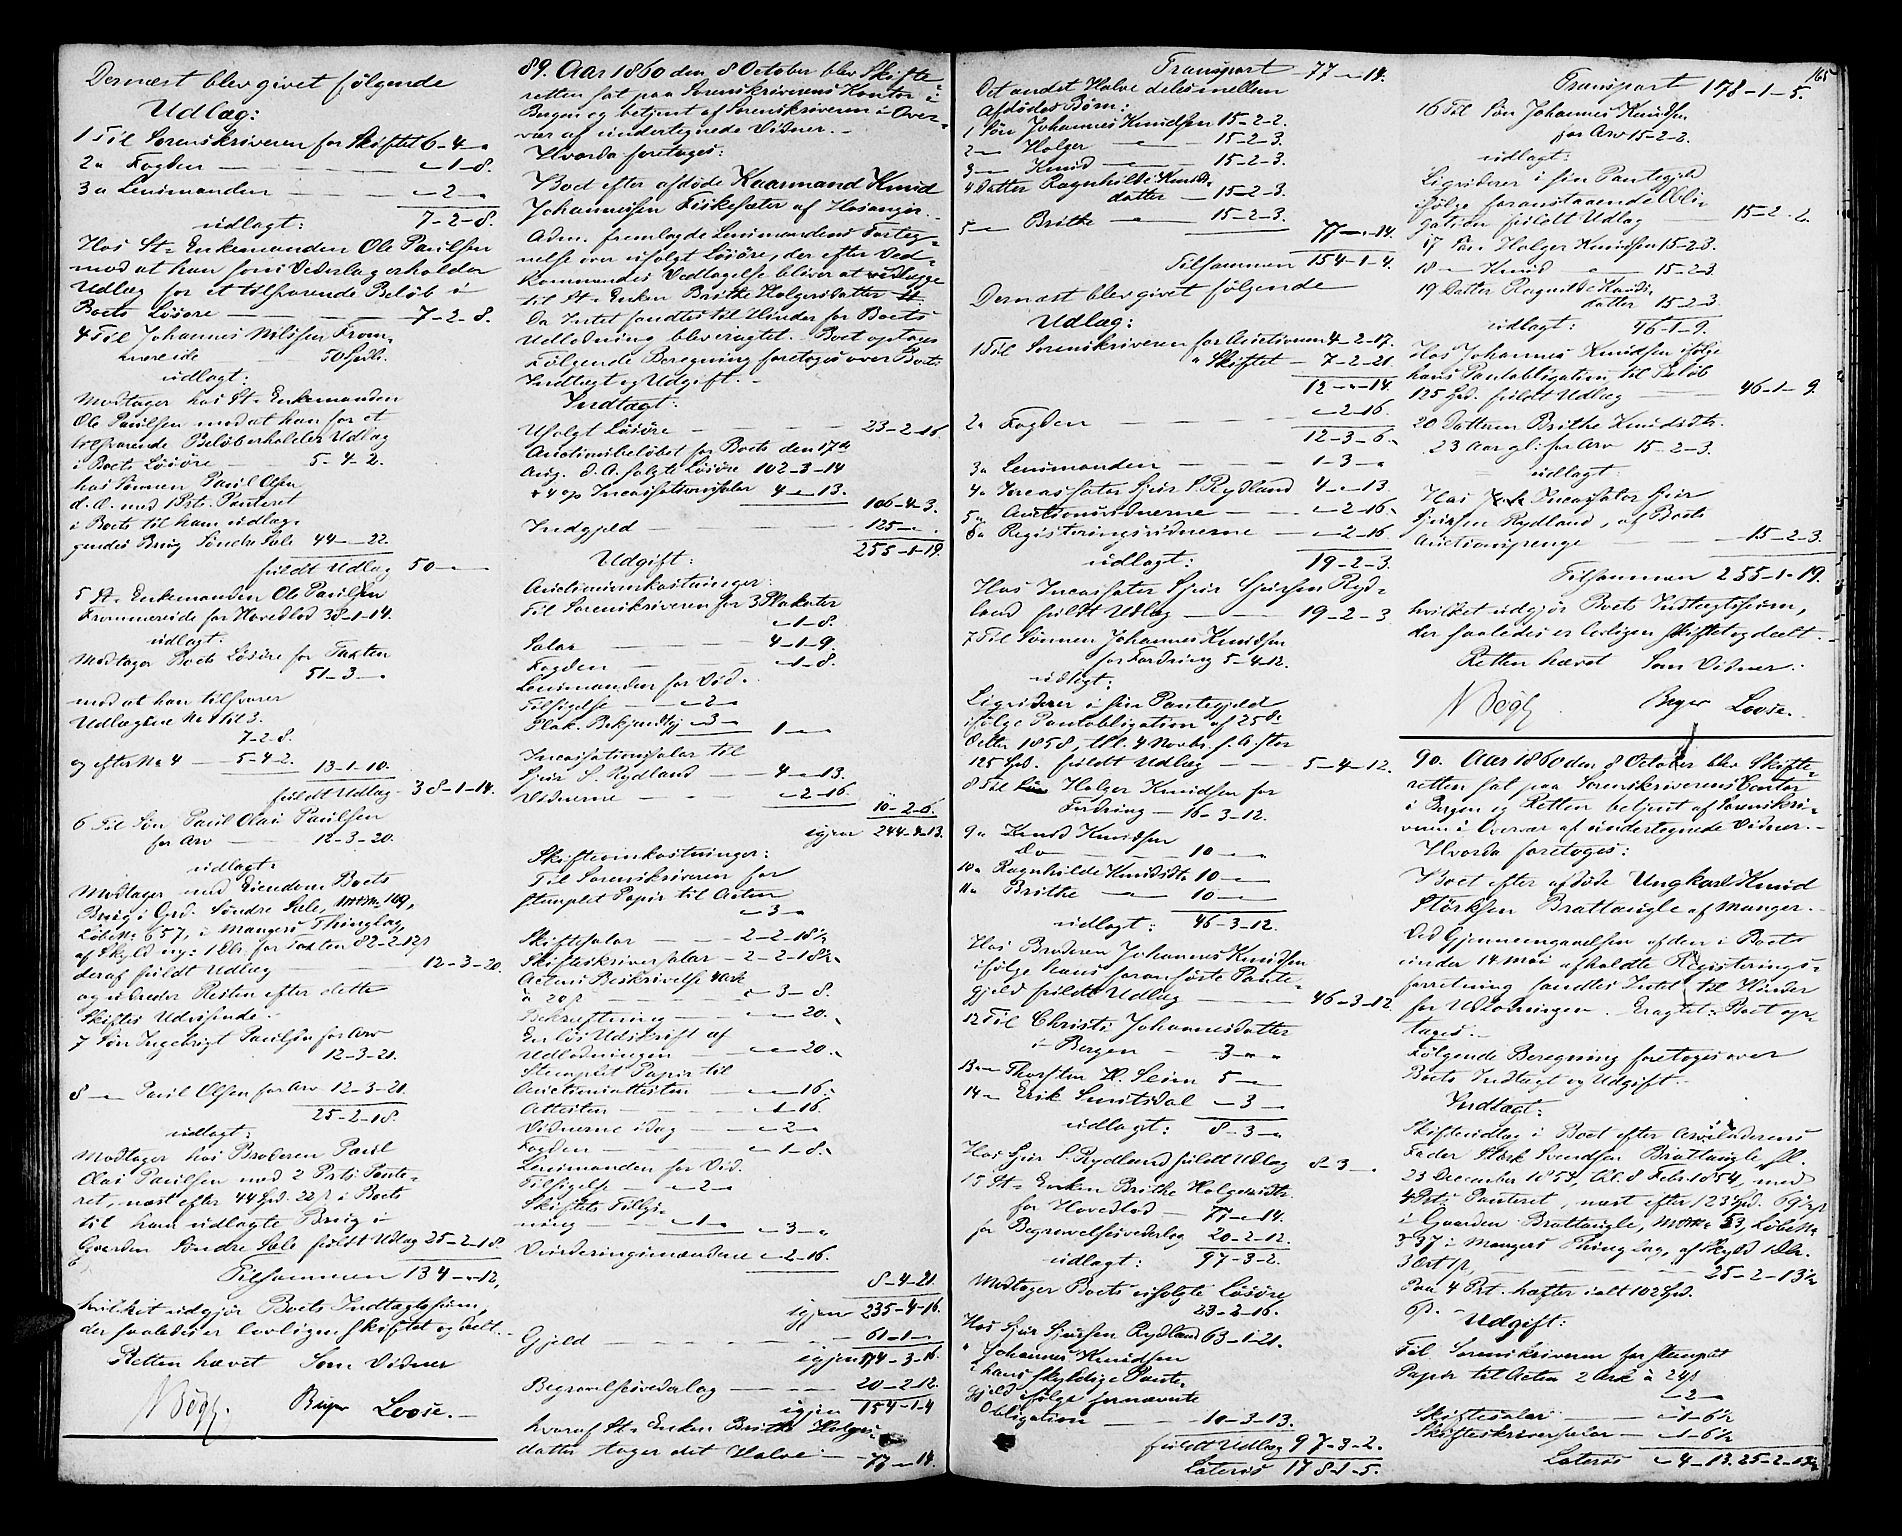 Dernæst blev givet følgende
Udlæg:
1 Til Sorenskriveren for Skiftet 6-4-„
2 „ Fogden — „-1-8.
3 „ Lensmanden — „-2-„
7-2-8.
udlagt:
Hos St: Enkemanden Ole Paulsen
mod at han som Vederlag erholder
Udlæg for et tilsvarende Beløb i
Boets Løsøre — 7-2-8.
4 Til Johannes Nilssen From-
mereide — 50 Spd.
udlagt:
Modtager hos St: Enkemanden
Ole Paulsen mod at han for et
tilsvarende Beløb erholder Udlæg
i Boets Løsøre — 5-4-2.
hos Sønnen Paul Olsen
d. A. med 1 Prts. Panteret
i Boets til ham udlæg-
gendes Brug Søndre Sæle 44-„-22.
fuldt Udlæg 50-„-„
5 St: Enkemanden Ole Paulsen
Frommereide for Hovedlod 38-1-14.
udlagt:
Modtager Boets Løsøre for Taxten
51-3-„
mod at han tilsvarer
Udlægene No 1 til 3.
7-2-8.
og efter No 4 — 5-4-2. 13-1-10.
fuldt Udlæg 38-1-14.
6 Til Søn Paul Olai Paulsen
for Arv — 12-3-20.
udlagt:
Modtager med Eiendom Boets
Brug i Grd. Søndre Sæle, Matr No 169,
Løbe No 657, i Mangers Thinglag,
af Skyld ny: 1 Dlr. for Taxten 82-2-12 ß
deraf fuldt Udlæg — 12-3-20.
og udreder Resten efter dette
Skiftes Udvisende.
7 Søn Ingebrigt Paulsen for Arv
12-3-21.
8 — Paul Olsen for Arv 12-3-21.
25-2-18.
udlagt:
Modtager hos Broderen Paul
Olai Paulsen med 2 Prts Pante-
ret, næst efter 44 Spd. 22 ß i Boets
til ham udlagte Brug i
Gaarden Søndre Sæle fuldt Udlæg 25-2-18.
Tilsammen 134-„-12,
hvilket udgjør Boets Indtægtssum,
der saaledes er lovligen skiftet og deelt.
Retten hævet Som Vidner
N Bøgh. Beyer Loose.
89. Aar 1860 den 8 October blev Skifte-
retten sat paa Sorenskriverens Kontor i
Bergen og betjent af Sorenskriveren i Over-
vær af undertegnede Vidner.
Hvorda foretoges:
Boet efter afdøde Kaarmand Knud
Johannessen Fiskesæter af Hosanger.
Adm. fremlagde Lensmandens Forteg-
nelse over usolgt Løsøre, der efter Ved-
kommendes Vedtagelse bliver at udlægge
til St: Enken Brithe Holgersdatter.
Da Intet fandtes til Hinder for Boets
Udlodning blev eragtet. Boet optages
Følgende Beregning foretoges over Boets
Indtægt og Udgift.
Indtægt:
Usolgt Løsøre — 23-2-16.
Auctionsbeløbet for Boets den 17de
Aug. d. A. solgte Løsøre 102-3-14
+ 4 op Incassationssalær 4-„-13. 106-4-3.
Indgjæld — 125-„-„
255-1-19.
Udgift:
Auctionsomkostninger:
Til Sorenskriveren for 3 Plakater
„-1-8.
Salær — 4-1-9.
Fogden — „-1-8.
Lensmanden for Vid.
Tilsigelse — „-2-„
Plak. Bekjendtg. „-3-„ 1-„-„
Incassationssalær til
Sjur S. Rydland — 4-„-13.
Vidnerne — „-2-16.
10-2-6.
igjen 244-4-13.
Skifteomkostninger:
Til Sorenskriveren for
stemplet Papir til Acten
„-3-„
Skiftesalær — 2-2-18½
Skifteskriversalær — 2-2-18½
Actens Beskrivelse 4 Ark
à 20 ß — „-3-8.
Bekræftning — „-„-20.
En løs Udskrift af
Udlodningen — „-„-20.
Stemplet Papir til
Auctionsattesten — „-„-16.
Attesten — „-1-16.
Vidnerne idag — „-2-„
Fogden — „-1-8.
Lensmanden for Vid.
Tilsigelse — „-2-„
Skiftets Tillys-
ning — „-1-„ „-3-„
Vurderingsmændene „-2-16.
8-4-21.
igjen 235-4-16.
Gjeld — 61-1-„
igjen 174-3-16.
Begravelsesvederlag — 20-2-12.
igjen 154-1-4
hvoraf St: Enken Brithe Holgers-
datter tager det Halve — 77-„-14.
Transport 77-„-14.
Det andet Halve deles mellem
Afdødes Børn:
1 Søn Johannes Knudsen 15-2-2.
2 — Holger — 15-2-3.
3 — Knud — 15-2-3.
4 Datter Ragnhilde Knuds-
datter — 15-2-3.
5 — Brithe — 15-2-3.
77-„-14.
Tilsammen 154-1-4.
Dernæst blev givet følgende
Udlæg:
1 Til Sorenskriveren for Auctionen 4-2-17.
„ Skiftet — 7-2-21.
12-„-14.
2 „ Fogden — „-2-16.
12-3-6.
3 „ Lensmanden — 1-3-„
4 „ Incassator Sjur S. Rydland 4-„-13.
5 „ Auctionsvidnerne — „-2-16.
6 „ Registeringsvidnerne — „-2-16.
19-2-3.
udlagt:
Hos Incassator Sjur Sjursen Ryd-
land fuldt Udlæg — 19-2-3
7 Til Sønnen Johannes Knudsen
for Fordring 5-4-12.
udlagt:
Liqviderer i sin Pantegjeld
ifølge Pantobligation af 25de
Octbr 1858, thl. 4 Novbr. s. A. stor
125 Spd. fuldt Udlæg — 5-4-12.
8 Til Holger Knudsen for
Fordring — 16-3-12.
9 „ Knud Knudsen
Do — 10-„-„
10 „ Ragnhilde Knudsdtr. 10-„-„
11 „ Brithe — 10-„-„
46-3-12.
udlagt:
Hos Broderen Johannes Knudsen
ifølge hans foranførte Pante-
gjeld fuldt Udlæg — 46-3-12.
12 Til Christi Johannesdatter
i Bergen — 3-„-„
13 „ Thorsten H. Seim 5-„-„
14 „ Erik Smitsdal „-3-„
udlagt: 8-3-„
Hos Sjur S. Rydland fuldt Udlæg 8-3-„
15 St: Enken Brithe Holgersdtr.
for Hovedlod — 77-„-14.
for Begravelsesvederlag 20-2-12.
udlagt: 97-3-2.
Modtager Boets usolgte Løsøre
23-2-16.
Hos Sjur Sjursen Rydland 63-1-21.
„ Johannes Knudsen
i hans skyldige Pante-
gjeld ifølge fornævnte
Obligation — 10-3-13.
fuldt Udlæg 97-3-2.
Lateris 178-1-5.
165
Transport 178-1-5.
16 Til Søn Johannes Knudsen
for Arv 15-2-2.
udlagt:
Liqviderer i sin Pantegjeld
ifølge foranstaaende Obli-
gation fuldt Udlæg 15-2-2.
17 Søn Holger Knudsen 15-2-3.
18 — Knud — 15-2-3.
19 Datter Ragnilde Knuds-
datter 15-2-3.
udlagt: 46-1-9.
Hos Johannes Knudsen ifølge
hans Pantobligation til Beløb
125 Spd. fuldt Udlæg — 46-1-9.
20 Datteren Brithe Knudsdtr.
23 Aar gl: for Arv 15-2-3.
udlagt
Hos Incassator Sjur
Sjursen Rydland, af Boets
Auctionspenge — 15-2-3.
Tilsammen 255-1-19.
hvilket udgjør Boets Indtægtssum,
der saaledes er lovligen skiftet og deelt.
Retten hævet Som Vidner:
N Bøgh. Beyer Loose.
90. Aar 1860 den 8 October blev Skifte-
retten sat paa Sorenskriverens Contor
i Bergen og Retten betjent af Sorenskri-
veren i Overvær af undertegnede Vidner.
Hvorda foretoges:
Boet efter afdøde Ungkarl Knud
Størksen Brattaule af Manger.
Ved Gjennemgaaelsen af den i Boets
under 14 Mai afholdte Registerings-
forretning fandtes Intet til Hinder
for Udlodningen. Eragtet: Boet op-
tages.
Følgende Beregning foretoges over
Boets Indtægt og Udgift.
Indtægt:
Skifteudlæg i Boet efter Arveladerens
Fader Størk Svendsen Brattaule, fl.
23 December 1853, thl. 8 Febr. 1854, med
4 Prts Panteret, næst efter 123 Spd. 69½ ß
i Gaarden Brattaule, Matr No 53, Løbe No
337 i Mangers Thinglag, af Skyld 1 Dlr.
3 Ort 1 ß, — 25-2-13½
Paa 4 Prt. hæfter ialt 102 Spd.
6 ß. Udgift:
Til Sorenskriveren for stemplet
Papir til Acten 2 Ark à 24 ß
„-2-„
Skiftesalær — „-1-6½
Skifteskriversalær — „-1-6½
Lateris „-4-13. 25-2-13½